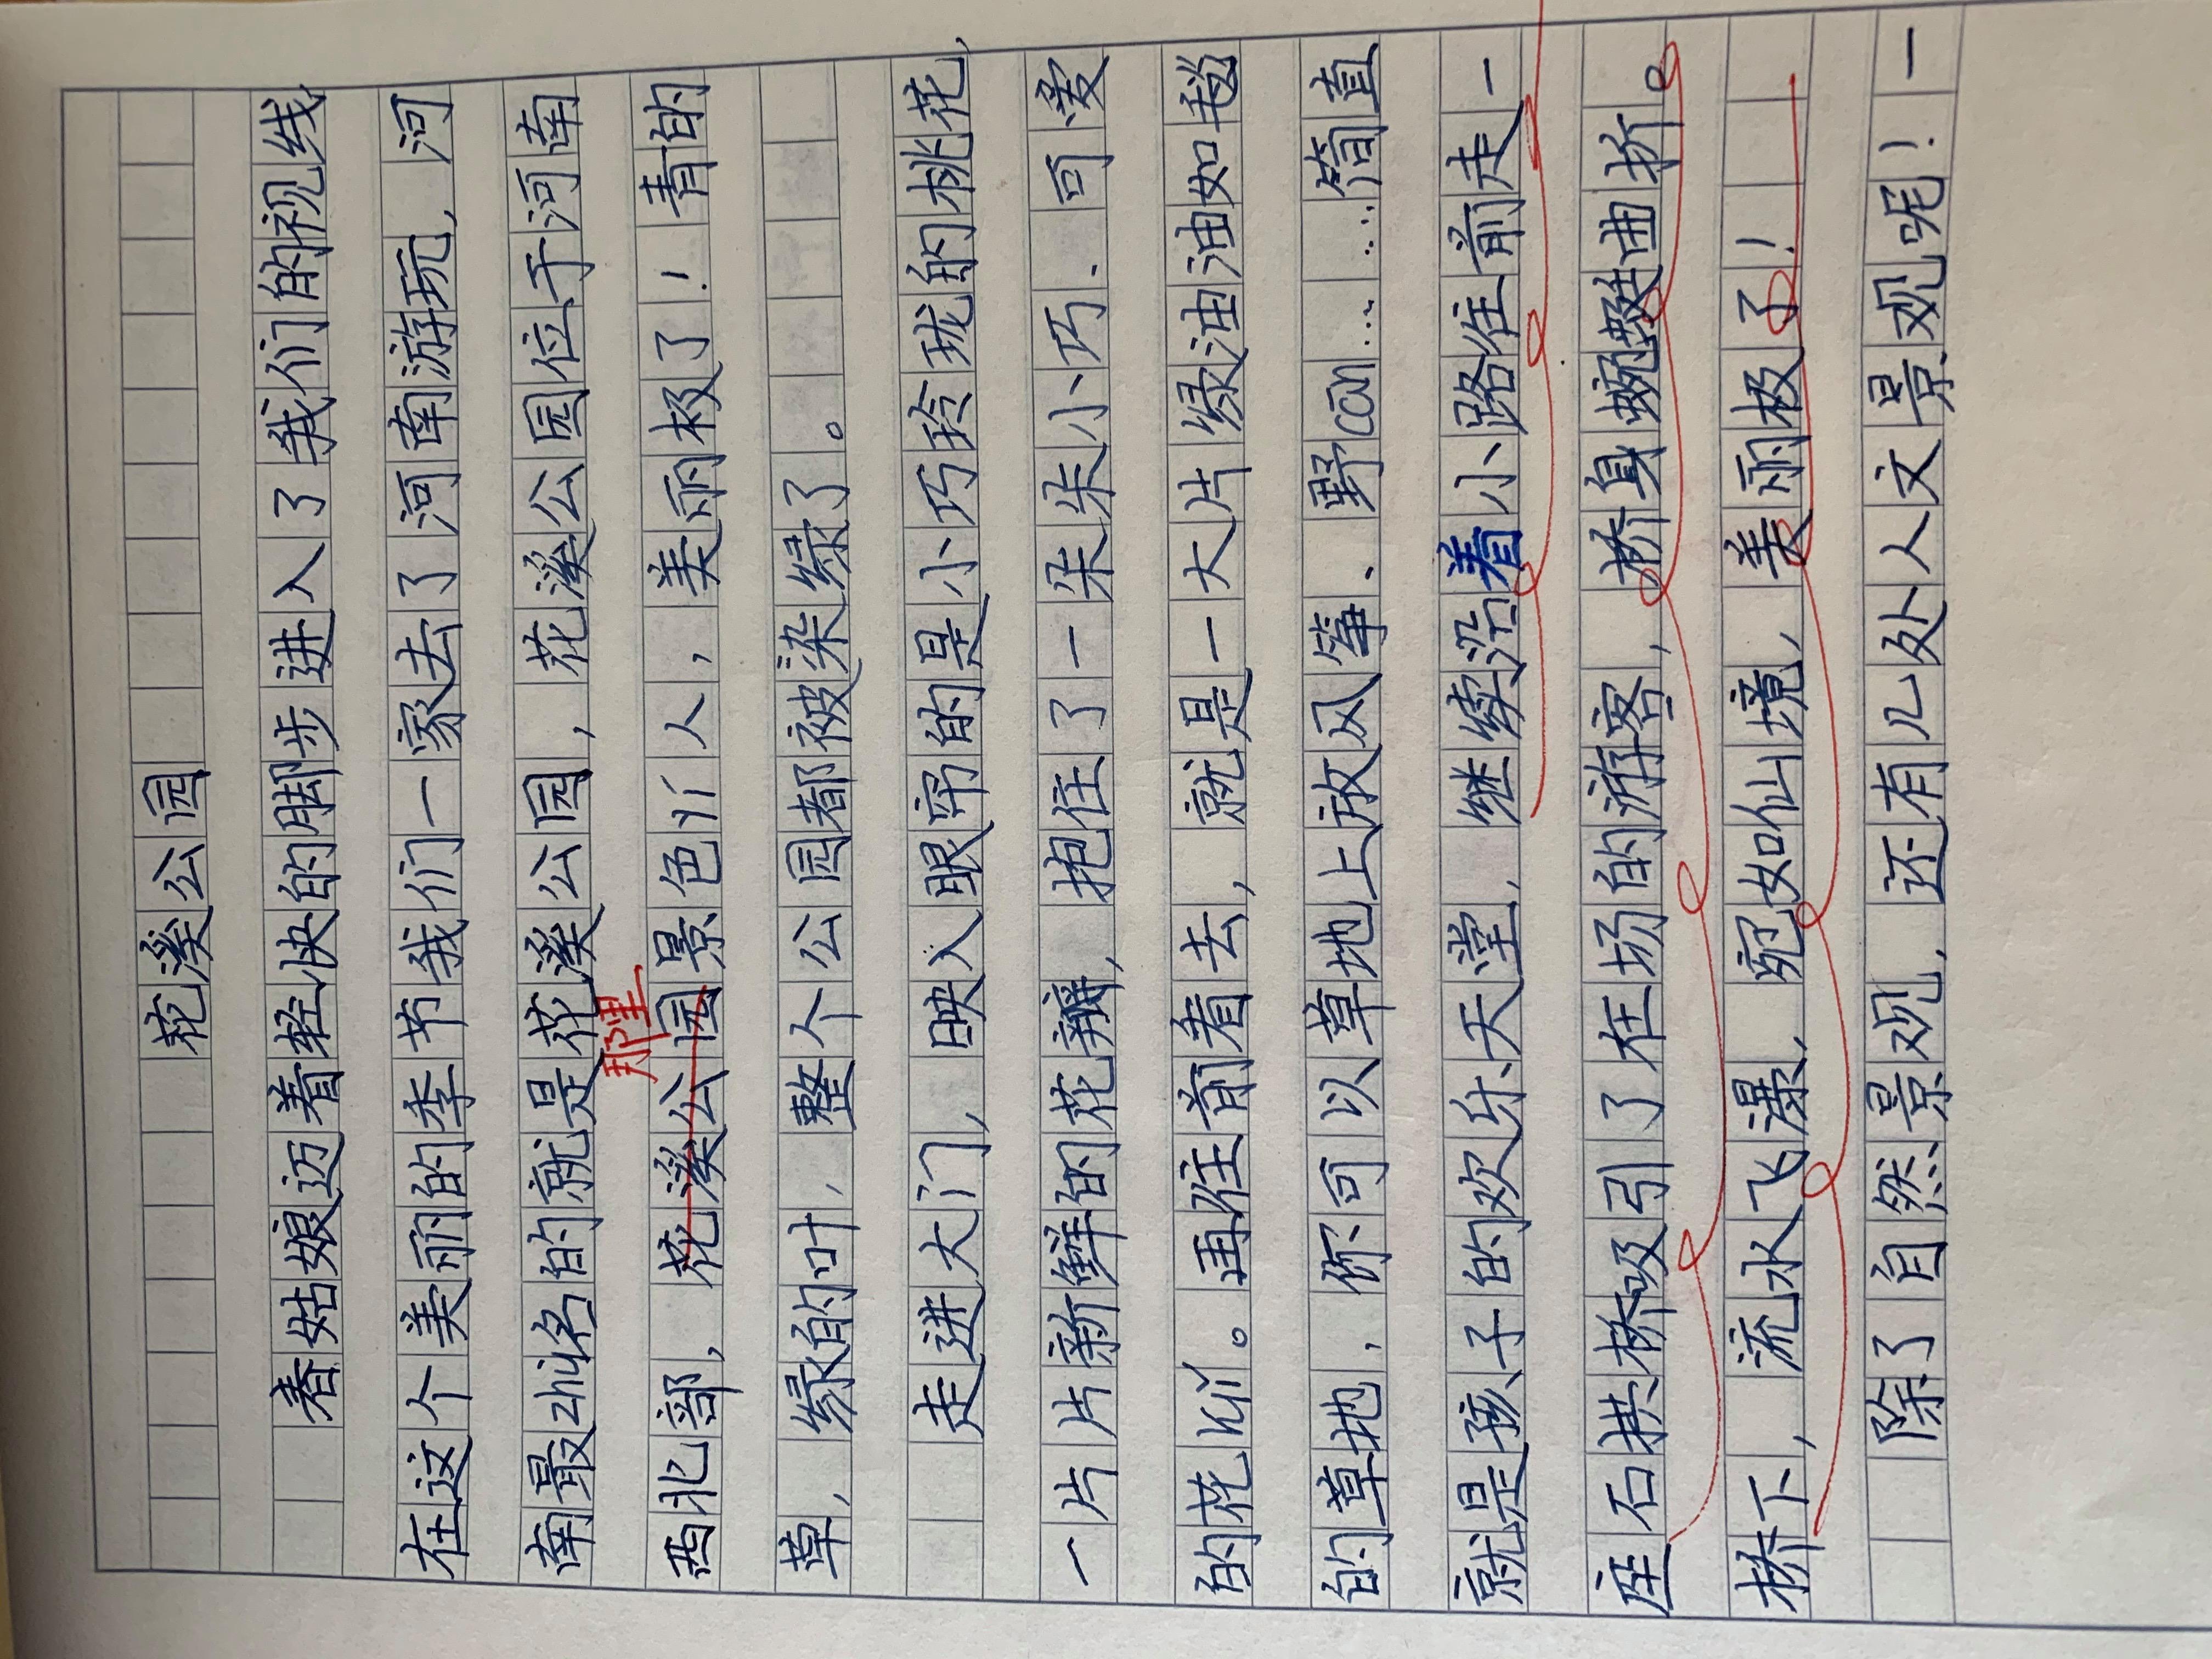 花溪公园
春姑娘迈着轻快的脚步进入了我们的视线
在这个美丽的季节我们一家去了河南游玩,河
南最出名的就是花溪公园,花溪公园位于河南
那里
西北部,花溪公园景色丫人,美丽极了!青的
草,绿的叶,整个公园都被染绿了。
走进大门,映入眼帘的是小巧玲珑的桃花,
一片片新鲜的花瓣,抱住了一朵朵小巧、可爱
的花。再往前看去,就是一大片绿油油如毯
的草地,你可以草地上放风筝、野can……简直
就是孩子的欢乐天堂,继续沿着小路往前走一
座石拱桥吸引了在场的游客,桥身蜿蜒曲折。
桥下,流水飞瀑,宛如仙境,美丽极了!
除了自然景观,还有几处人文景观呢!一